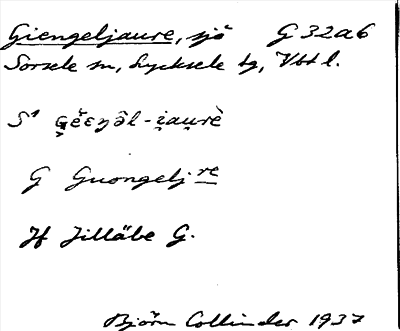 Giengeljaure, sjö G 32a6
Sorsele sn, Lycksele tg, Vbtl.
S¹ G̬ĕɛŋə̑l-i̯au̯rè
G Guongelj re
Jf Jillåbe G.
Björn Collinder 1937